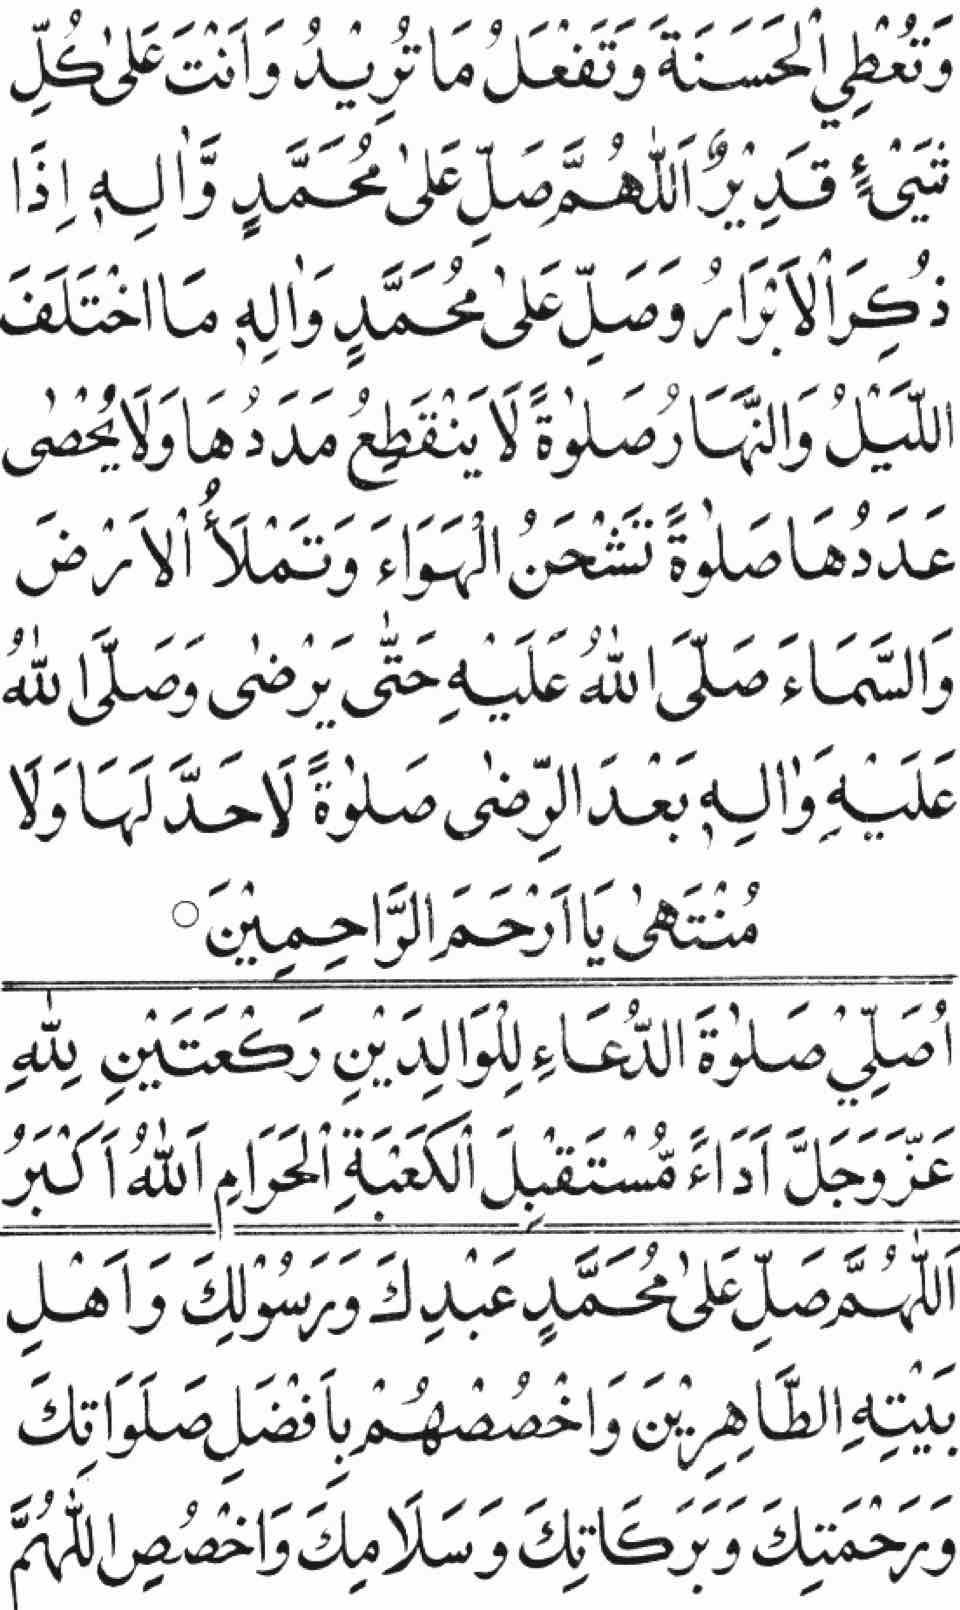 وَتُعْطِي الْحَسَنَةَ وَتَفْعَلُ مَا تُرِيْدُ وَاَنْتَ عَلٰى كُلِّ
شَيْءٍ قَدِيْرٌ اَللّٰهُمَّ صَلِّ عَلٰى مُحَمَّدٍ وَّاٰلِهٖ اِذَا
ذُكِرَ الْاَبْرَارُ وَصَلِّ عَلٰى مُحَمَّدٍ وَاٰلِهٖ مَا اخْتَلَفَ
اللَّيْلُ وَالنَّهَارُ صَلٰوةً لَا يَنْقَطِعُ مَدَدُهَا وَلَا يُحْصٰى
عَدَدُهَا صَلٰوةً تَشْحَنُ الْهَوَاءَ وَتَمْلَأُ الْاَرْضَ
وَالسَّمَاءَ صَلَّى اللّٰهُ عَلَيْهِ حَتّٰى يَرْضٰى وَصَلَّى اللّٰهُ
عَلَيْهِ وَاٰلِهٖ بَعْدَ الرِّضٰى صَلٰوةً لَا حَدَّ لَهَا وَلَا
مُنْتَهٰى يَا اَرْحَمَ الرَّاحِمِيْنَ ○
اُصَلِّيْ صَلٰوةَ الدُّعَاءِ لِلْوَالِدَيْنِ رَكْعَتَيْنِ لِلّٰهِ
عَزَّ وَجَلَّ اَدَاءً مُّسْتَقْبِلَ الْكَعْبَةِ الْحَرَامِ اَللّٰهُ اَكْبَرُ
اَللّٰهُمَّ صَلِّ عَلٰى مُحَمَّدٍ عَبْدِكَ وَرَسُوْلِكَ وَاَهْلِ
بَيْتِهِ الطَّاهِرِيْنَ وَاخْصُصْهُمْ بِاَفْضَلِ صَلَوَاتِكَ
وَرَحْمَتِكَ وَبَرَكَاتِكَ وَسَلَامِكَ وَاخْصُصِ اللّٰهُمَّ